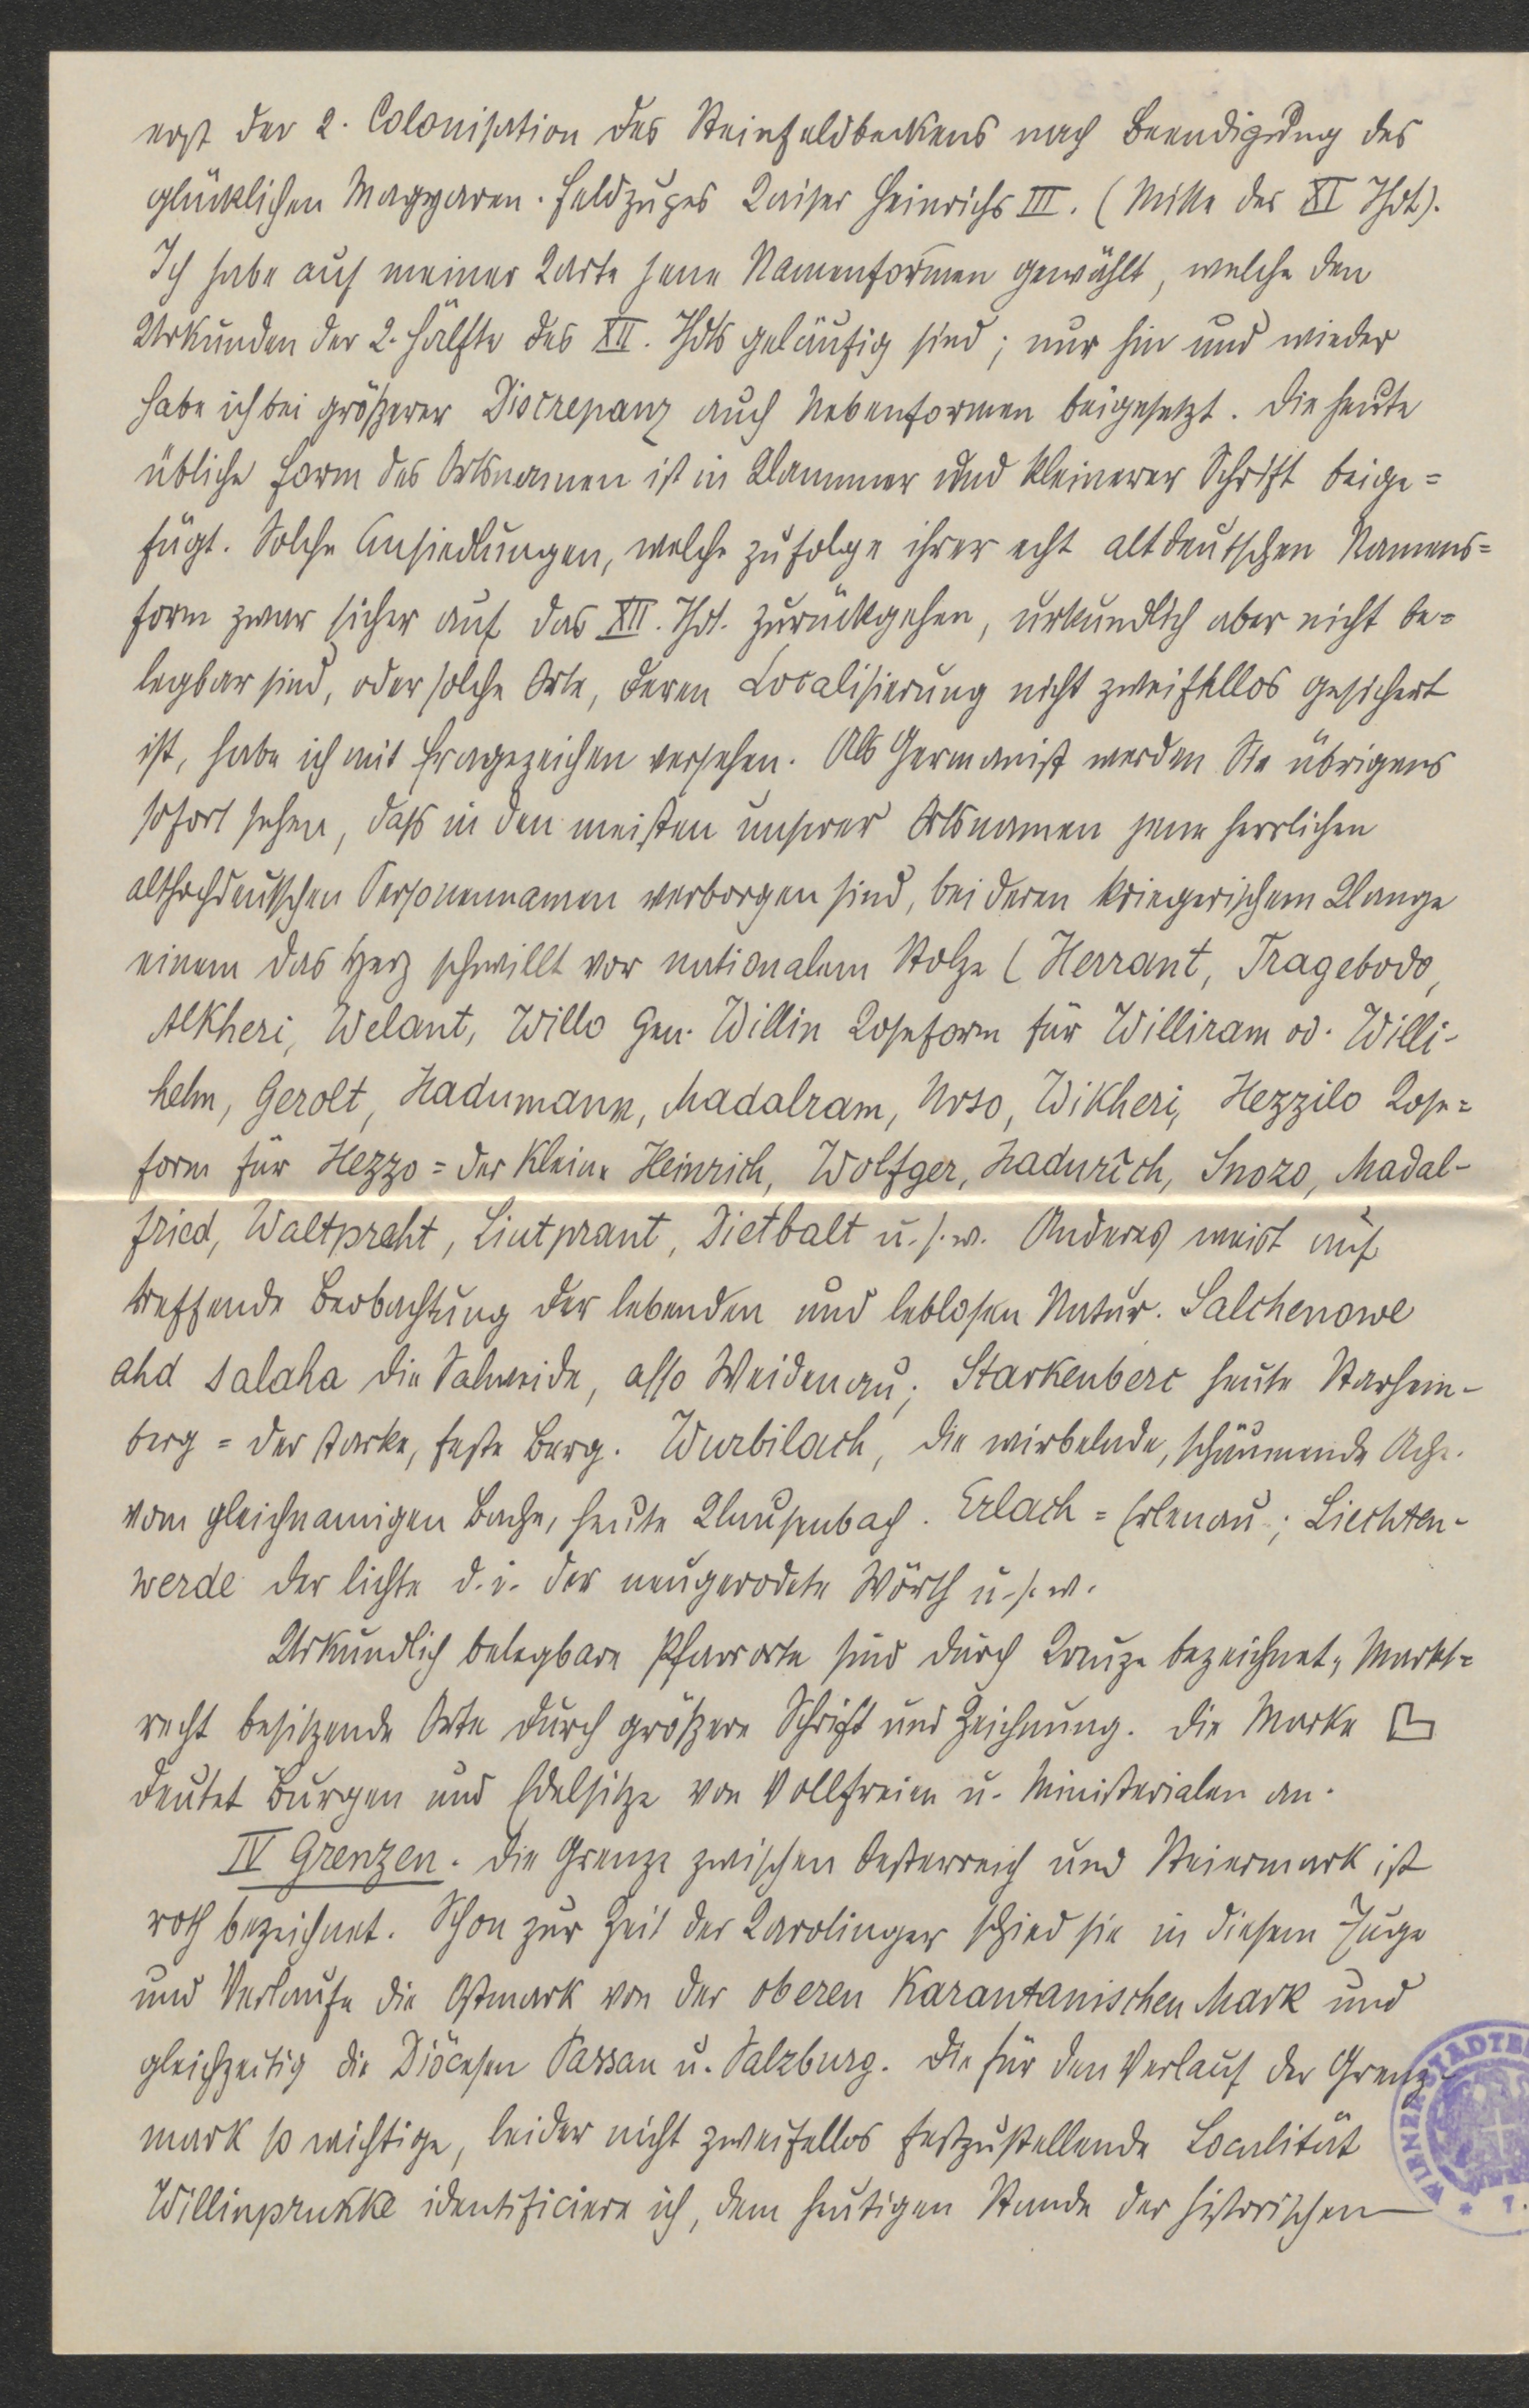 erst der 2. Colonisation des Steinfeldbeckens nach Beendigung des
glücklichen Magyaren-Feldzuges Kaiser Heinrichs III. (Mitte des XI Jhdt).
Ich habe auf meiner Karte jene Namenformen gewählt, welche den
Urkunden der 2. Hälfte des XII. Jhdts geläufig sind; nur hin und wieder
habe ich bei größerer Discrepanz auch Nebenformen beigesetzt. Die heute
übliche Form des Ortsnamen ist in Klammer und kleinerer Schrift beige=
fügt. Solche Ansiedlungen, welche zufolge ihrer echt altdeutschen Namens=
form zwar sicher auf das XII. Jhdt. zurückgehen, urkundlich aber nicht be=
legbar sind, oder solche Orte, deren Localisierung nicht zweifellos gesichert
ist, habe ich mit Fragezeichen versehen. Als Germanist werden Sie übrigens
sofort sehen, daß in den meisten unserer Ortsnamen jene herrlichen
althochdeutschen Personennamen verborgen sind, bei deren kriegerischem Klange
einem das Herz schwillt vor nationalem Stolze (Herrant, Tragebodo,
Alkheri, Welant, Willo Gen. Willin Koseform für Williram od. Willi-
helm, Gerolt, Hadumann, Madalram, Urso, Wikheri, Hezzilo Kose=
form für Hezzo = der kleine Heinrich, Wolfger, Hadurîch, Snozo, Madal-
fried, Waltpraht, Liutprant, Dietbalt u.s.w. Anderes weist auf
treffende Beobachtung der lebenden und leblosen Natur. Salchenowe
ahd salaha die Salweide, also Weidenau; Starkenberc heute Starhem-
berg = der starke, feste Berg. Wurbilach, die wirbelnde, schäumende Ache.
vom gleichnamigen Bache, heute Klausenbach. Erlach = Erlenau; Liechten-
werde der lichte d.i. der neugerodete Wörth u.s.w.
Urkundlich belegbare Pfarrorte sind durch Kreuze bezeichnet, Markt=
recht besitzende Orte durch größere Schrift und Zeichnung. Die Marke
deutet Burgen und Edelsitze von Vollfreien u. Ministerialen an.
IV Grenzen. Die Grenze zwischen Oesterreich und Steiermark ist
roth bezeichnet. Schon zur Zeit der Karolinger schied sie in diesem Zuge
und Verlaufe die Ostmark von der oberen Karantanischen Mark und
gleichzeitig die Diöcesen Passau u. Salzburg. Die für den Verlauf der Grenz-
mark so wichtige, leider nicht zweifellos festzustellende Localität
Willinprukke identificiere ich, dem heutigen Stande der historischen